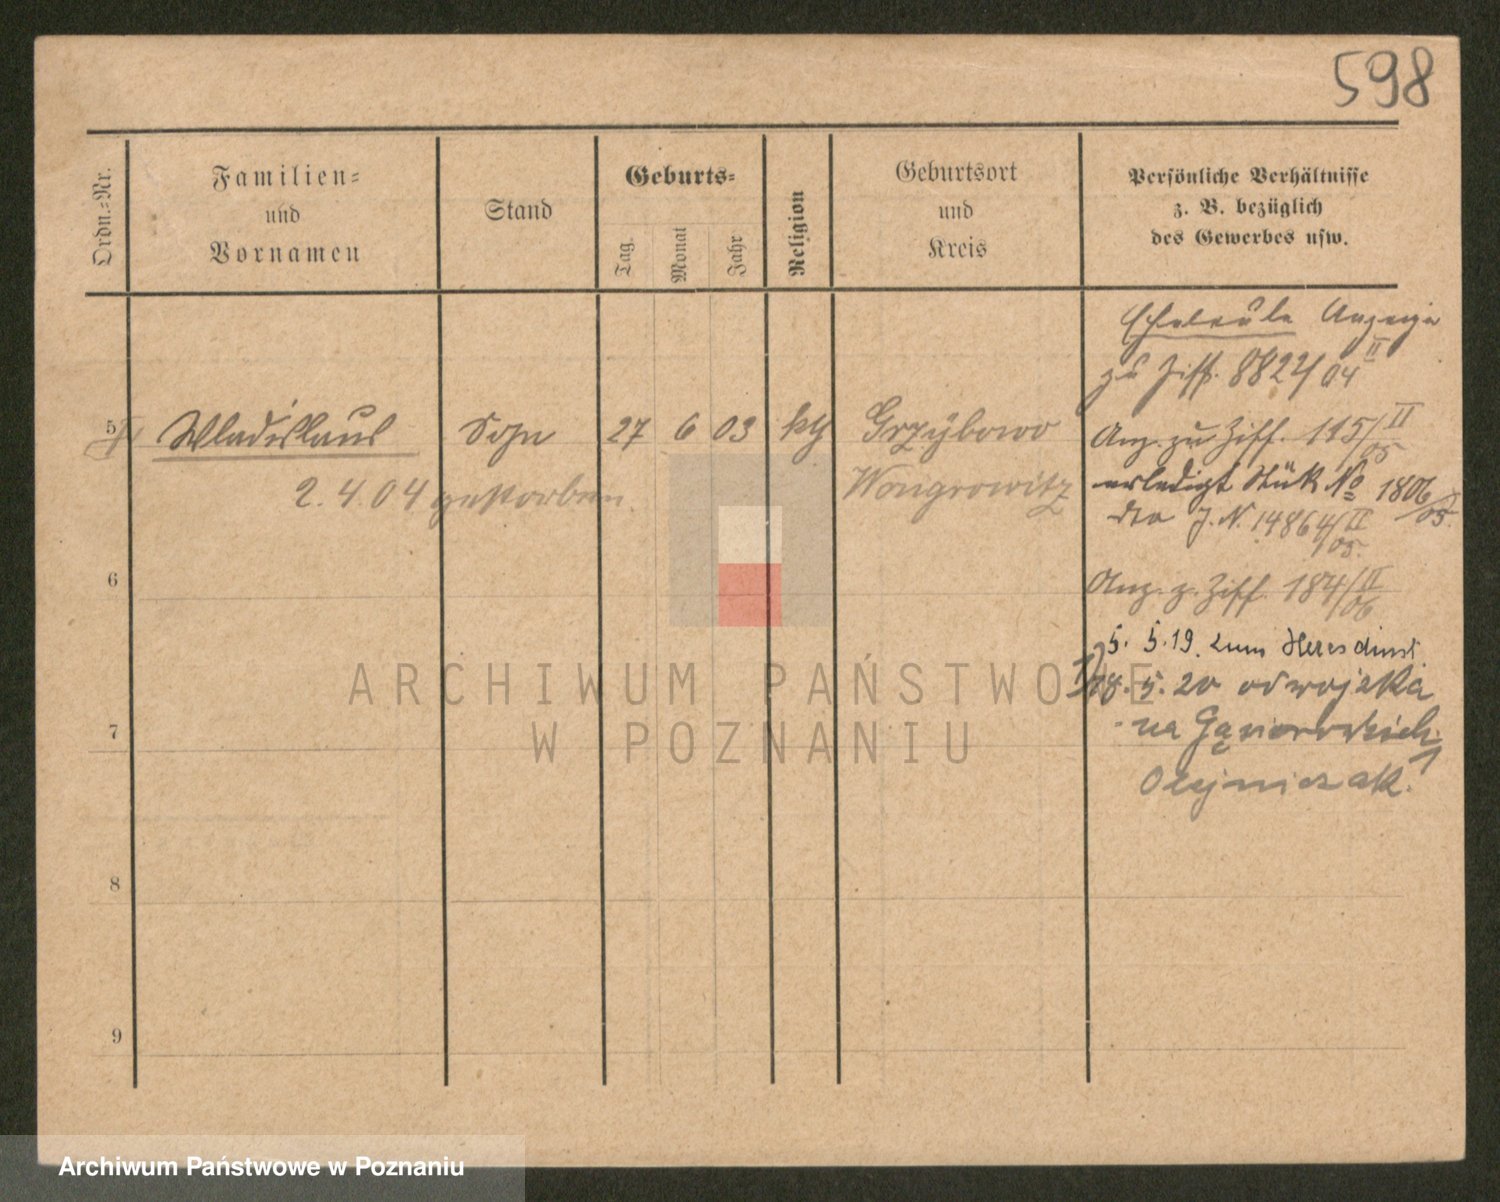 598
Ordn.=Nr.
Familien=
und
Vornamen
Stand
Geburts=
Tag.
Monat
Jahr
Religion
Geburtsort
und
Kreis
Persönliche Verhältnisse
z. B. bezüglich
des Gewerbes usw.
Anzeige
zu Ziff. 8822/04 II
5 Wladislaus Sohn 27 6 03 kth Grzybowo
2.4.04 gestorben. Wongrowitz
Anz. zu Ziff. 115/II 05
erledigt Stück No 1806/05.
J. N. 14864/II 05.
6
Anz. z. Ziff. 184/II 06
5. 5.19. zum Heresdinst
18. 5. 20 od wojska
7
na Gąsiorowskich
Olejniczak.
8
9
ARCHIWUM PAŃSTWOWE
W POZNANIU
Archiwum Państwowe w Poznaniu